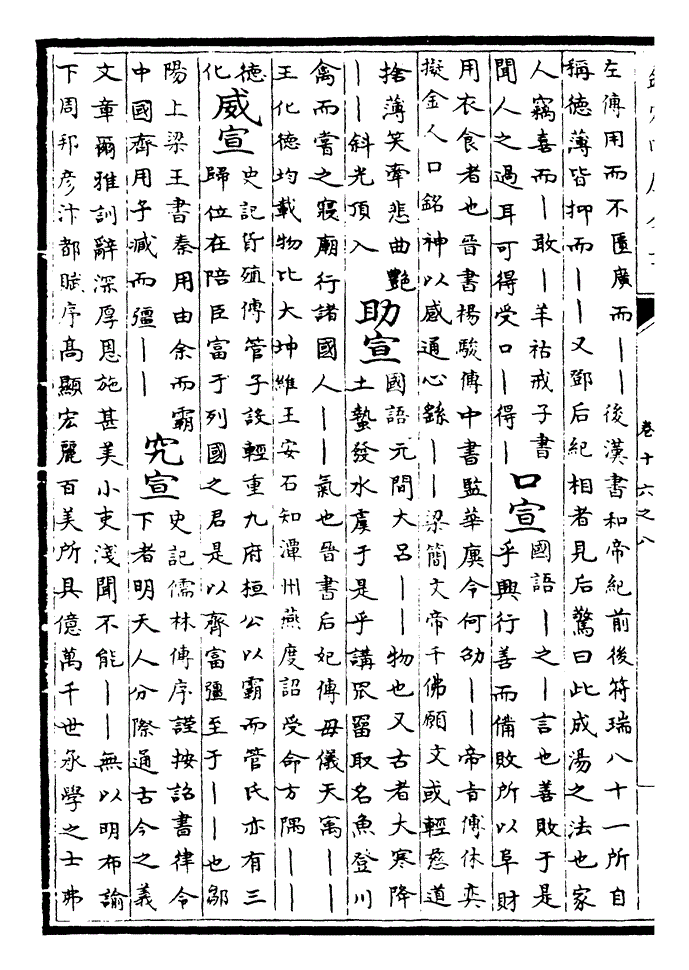 左傳用而不匱廣而||後漢書和帝紀前後符瑞八十一所自
稱德薄皆抑而||又鄧后紀相者見后驚曰此成湯之法也家
人竊喜而|敢|羊祜戒子書
聞人之過耳可得受口|得|
口宣
國語|之|言也善敗于是
乎興行善而備敗所以阜財
用衣食者也晉書楊駿傳中書監華廙令何劭||帝旨傅休奕
擬金人口銘神以感通心繇||梁簡文帝千佛願文或輕慈道
捨薄笑牽悲曲艷
||斜光頂入
助宣
國語元間大呂||物也又古者大寒降
土蟄發水虞于是乎講罛罶取名魚登川
禽而嘗之寢廟行諸國人||氣也晉書后妃傳毋儀天寓||
王化德均載物比大坤維王安石知潭州燕度詔受命方隅||
德
化
威宣
史記貨殖傳管子設輕重九府桓公以霸而管氏亦有三
歸位在陪臣富于列國之君是以齊富彊至于||也鄒
陽上梁王書秦用由余而霸
中國齊用子臧而彊||
究宣
史記儒林傳序謹按詔書律令
下者明天人分際通古今之義
文章爾雅訓辭深厚恩施甚美小吏淺聞不能||無以明布諭
下周邦彥汴都賦序高顯宏麗百美所具億萬千世承學之士弗
卷十六之八